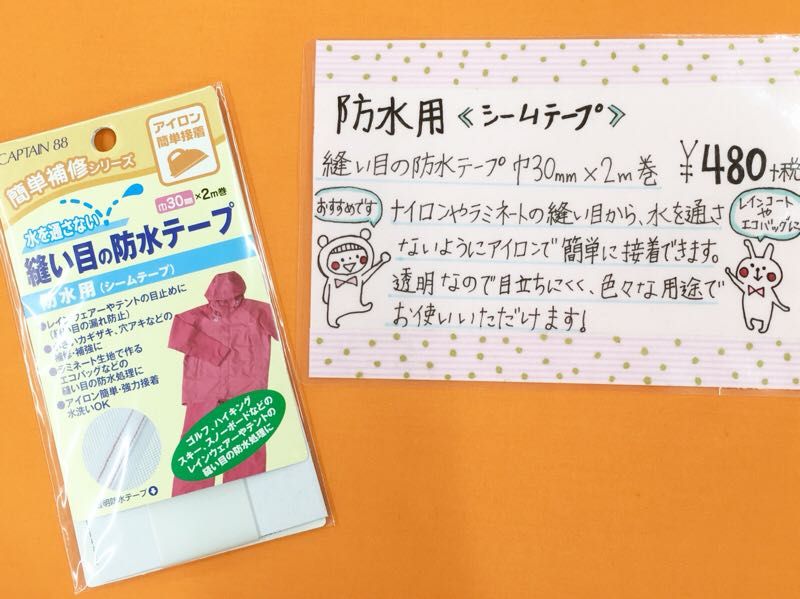 CAPTAIN 88
アイロン
簡単接着
簡単補修シリーズ
巾30mm×2m巻
水を通さない
縫い目の防水テープ
防水用(シームテープ)
●レインウェアーやテントの目止めに
(縫い目の漏れ防止)
さいカギザキ、穴アキなどの
補修・補強に
ラミネート生地で作る
エコバッグなどの
縫い目の防水処理に
●アイロン簡単・強力接着
水洗いOK
ゴルフ、ハイキング
スキー、スノーボードなどの
レインウェアーやテントの
縫い目の防水処理に
透明防水テープ
防水用《シームテープ》
縫い目の防水テープ 巾30mm×2m巻 ¥480+税
おすすめです
ナイロンやラミネートの縫い目から、水を通さ
ないようにアイロンで簡単に接着できます。
透明なので目立ちにくく、色々な用途で
お使いいただけます!
レインコート
や
エコバッグに